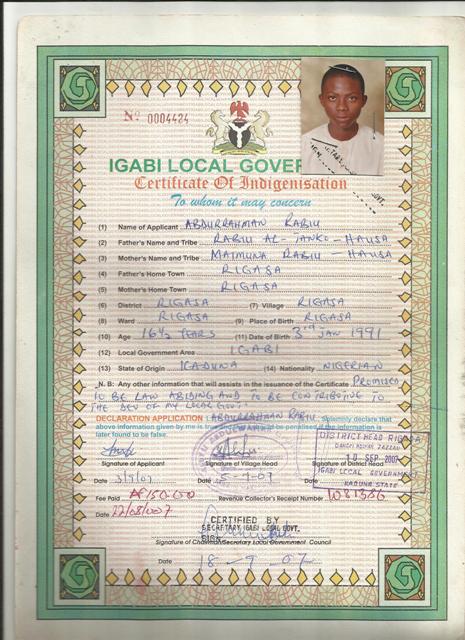 No 0004424
IGABI LOCAL GOVER
Certificate Of Indigenisation
To whom it may concern
(1) Name of Applicant ABDURRAHMAN RABIU
(2) Father's Name and Tribe RABIU AL-TANKO - HAUSA
(3) Mother's Name and Tribe MAIMUNA RABIU - HAUSA
(4) Father's Home Town RIGASA
(5) Mother's Home Town RIGASA
(6) District RIGASA (7) Village RIGASA
(8) Ward RIGASA (9) Place of Birth RIGASA
(10) Age 16½ YEARS (11) Date of Birth 3rd JAN 1991
(12) Local Government Area IGABI
(13) State of Origin KADUNA (14) Nationality NIGERIAN
N. B: Any other information that will assists in the issuance of the Certificate PROMISED
TO BE LAW ABIDING AND TO BE CONTRIBUTIVE TO
THE DEV OF MY LOCAL GOVT.
DECLARATION APPLICATION I ABDURRAHMAN RABIU Solemnly declare that
above information given by me is true penalised if the information is
later found to be false.
DISTRICT HEAD RIGASA
10 SEP 2007
IGABI LOCAL GOVERNMENT
KADUNA STATE
Signature of Applicant Signature of Village Head Signature of District Head
Date 3/9/07 Date 5-9-07 Date
Fee Paid ₦150.00 Revenue Collector's Receipt Number 1081386
Date 22/08/007
CERTIFIED BY
SECRETARY IGABI LOCAL GOVT.
SIGN
Signature of Chairman/Secretary Local Government Council
Date 18-9-07